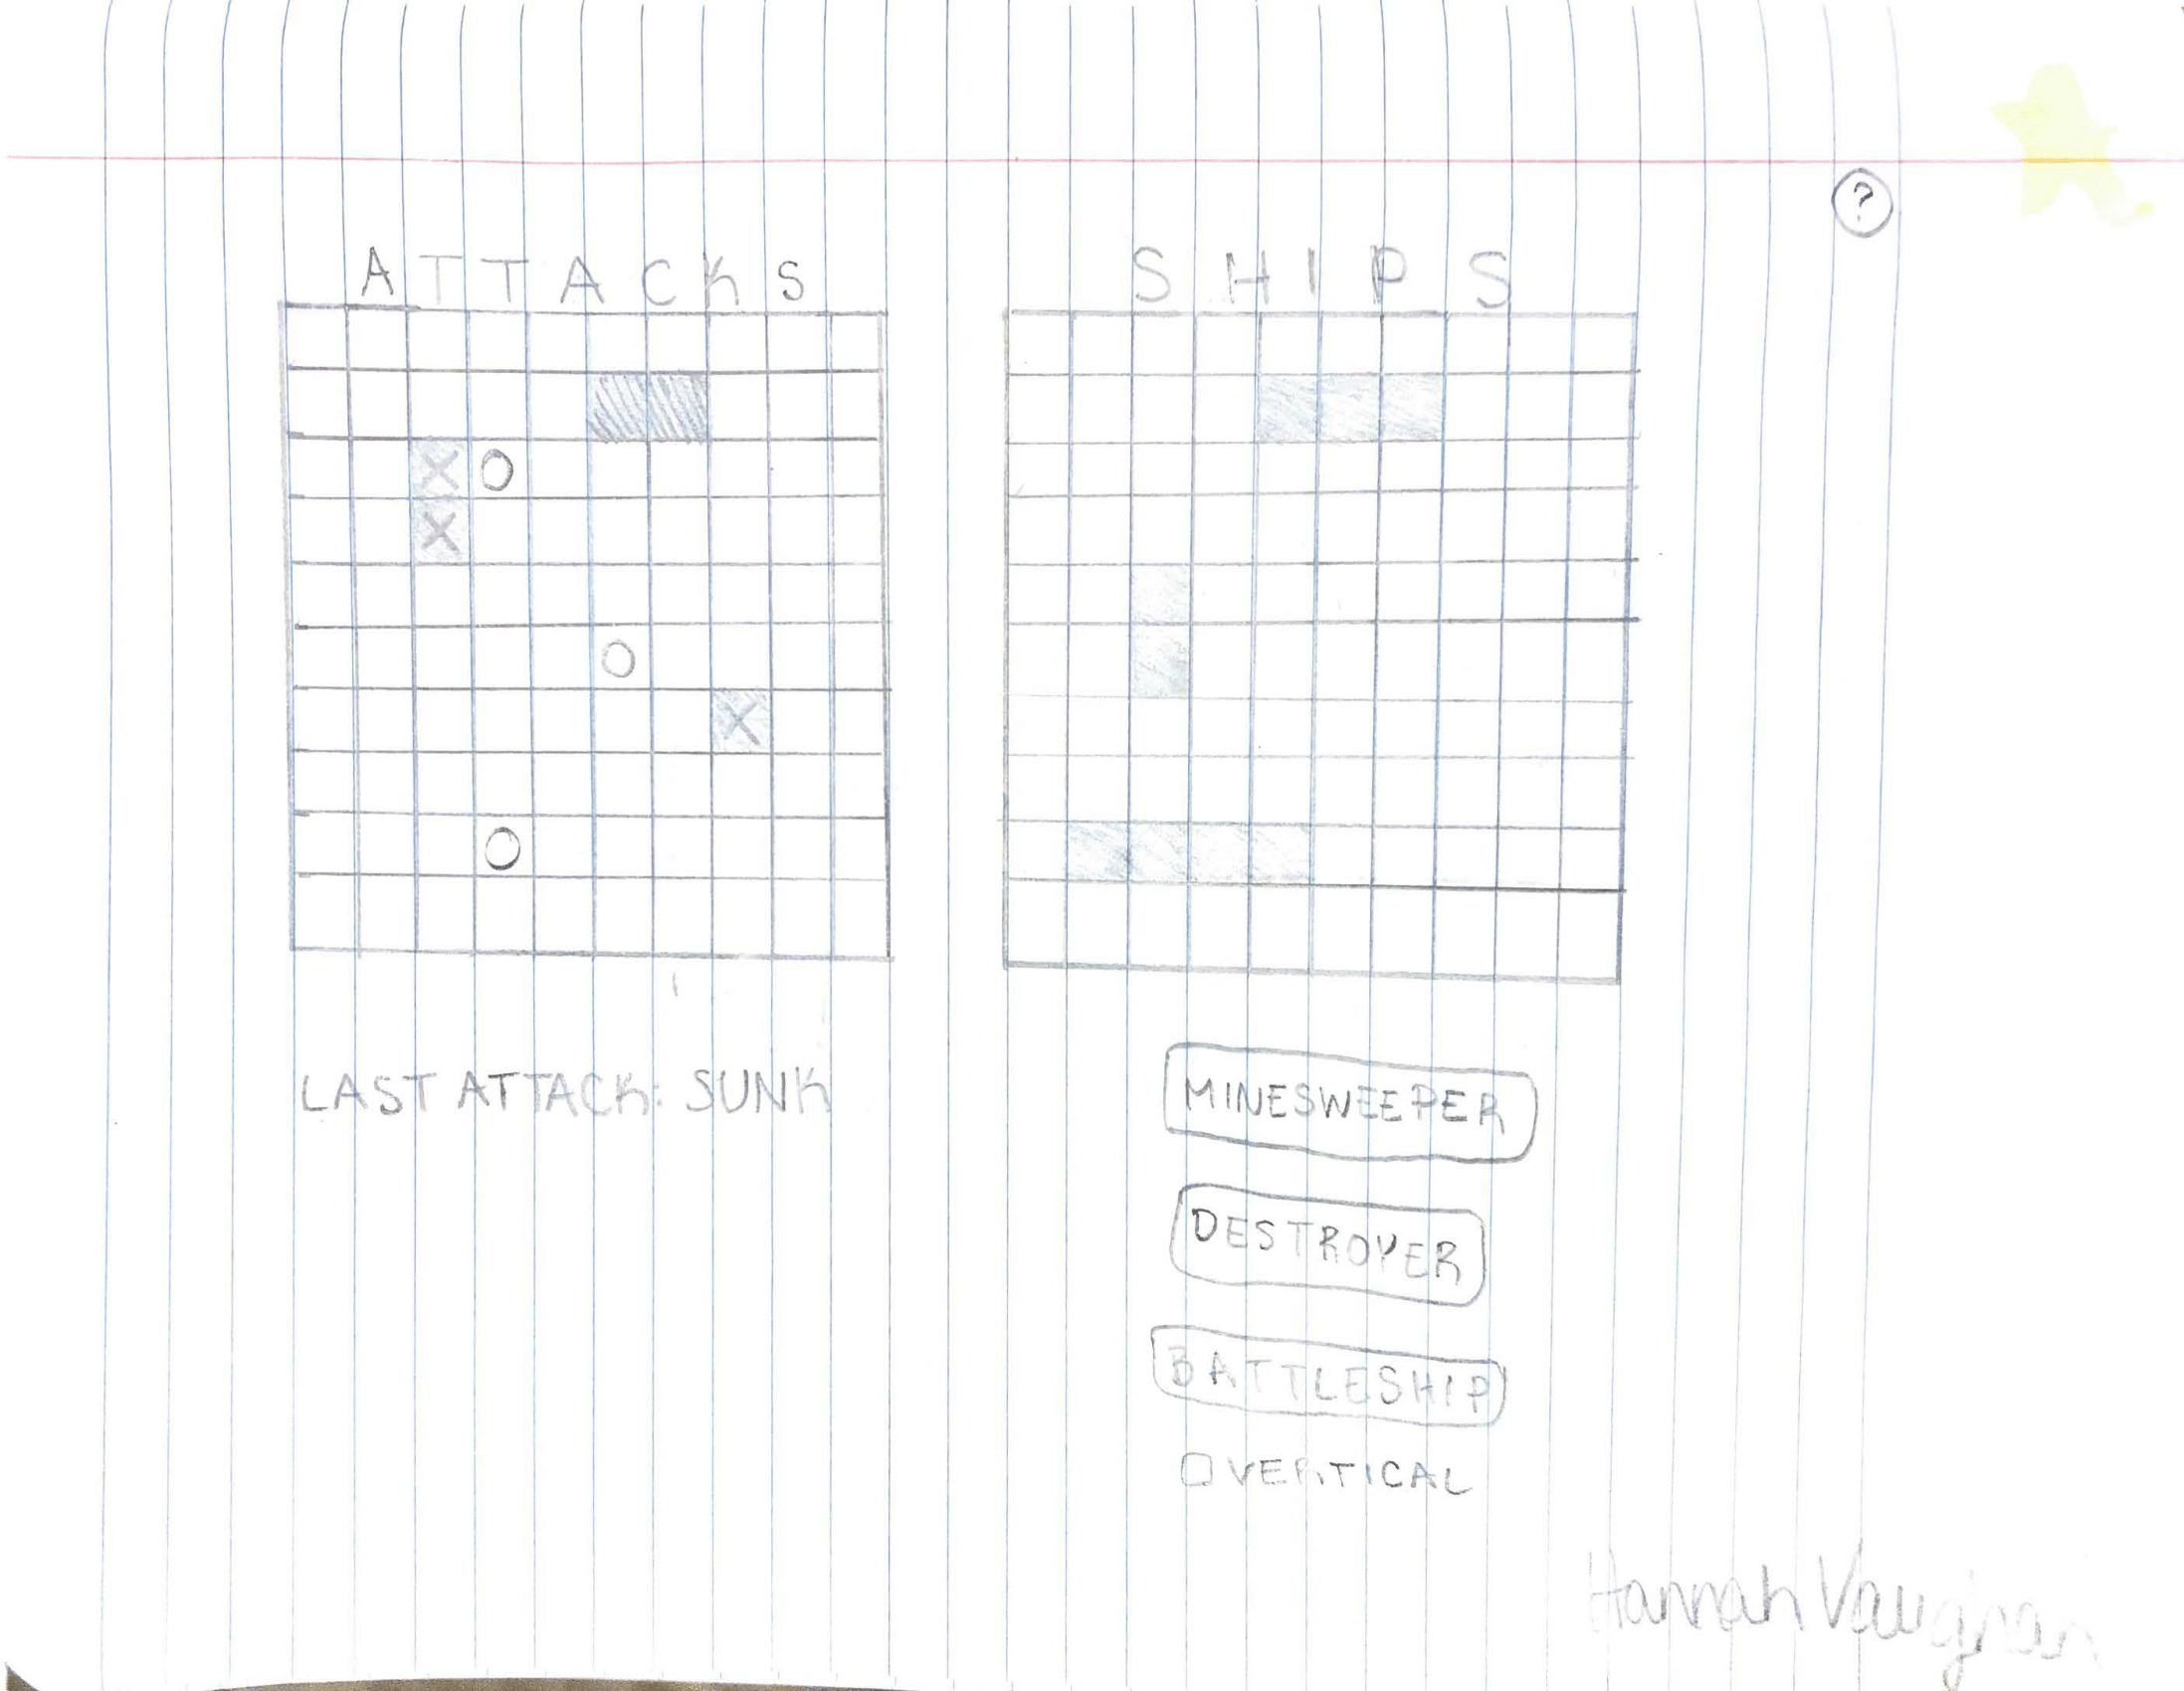 ?
ATTACKS
SHIPS
X O
X
O
X
O
LAST ATTACK: SUNK
MINESWEEPER
DESTROYER
BATTLESHIP
VERTICAL
Hannah Vaughan